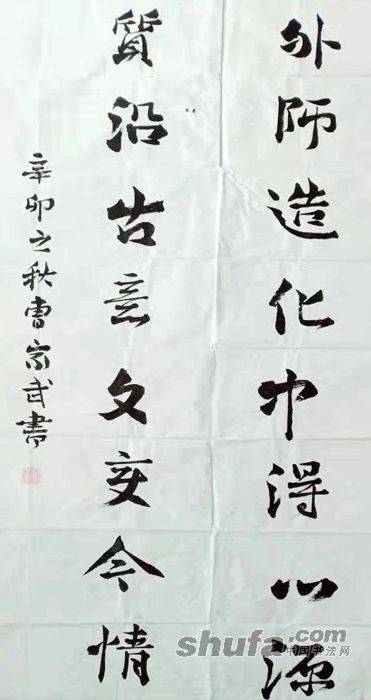 外师造化中得心源
質沿古意文变今情
辛卯之秋曹家武書
shufa.com
中国书法网